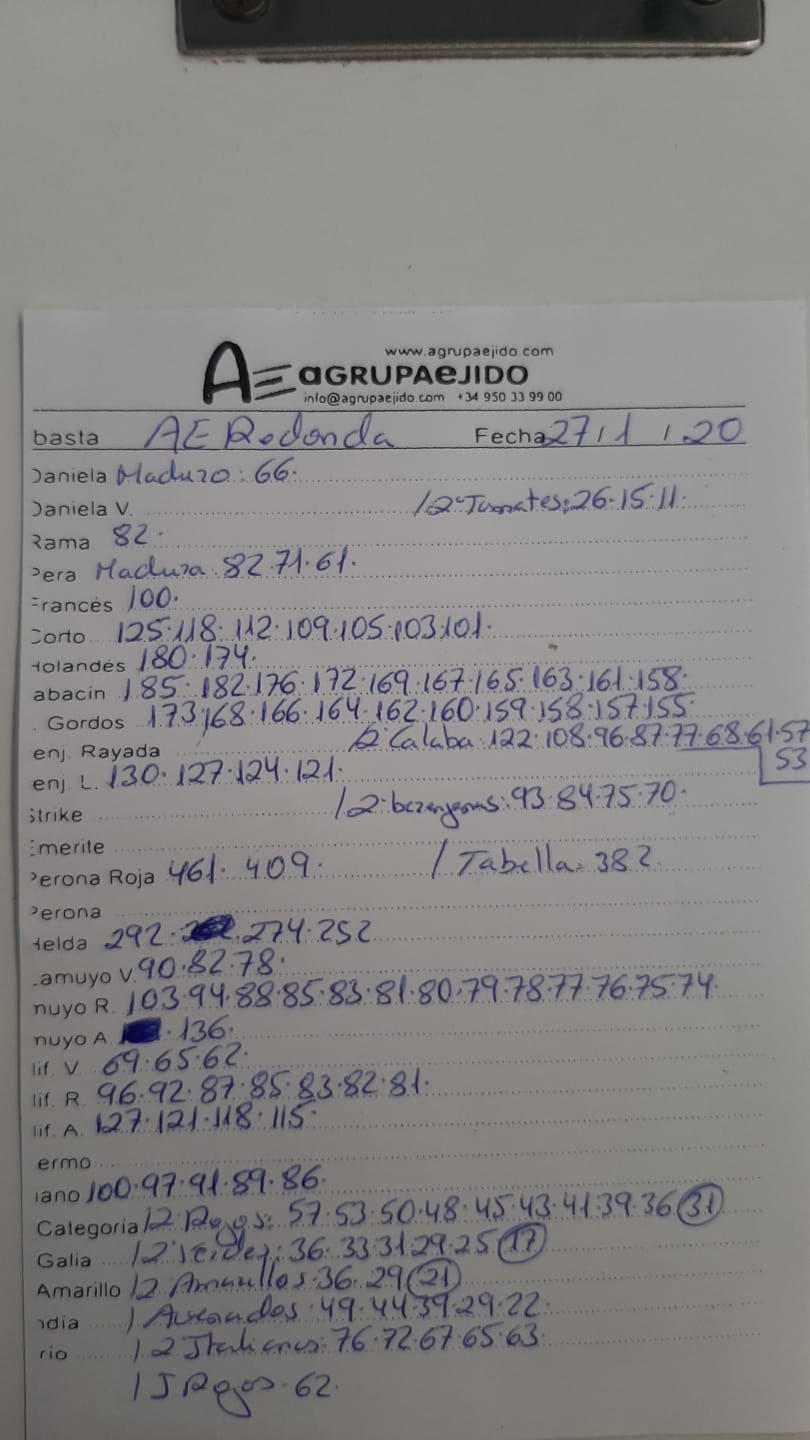 www.agrupaejido.com
AE aGRUPAeJIDO
info@agrupaejido.com +34 950 33 99 00
basta AE Redonda Fecha 27/1/20
Daniela Maduro: 66.
Daniela V. /2ª Tomates: 26.15.11.
Rama 82.
Pera Madura 82.71.61.
Francés 100.
Corto 125.118.112.109.105.103.101.
Holandés 180.174.
abacin 185.182.176.172.169.167.165.163.161.158.
. Gordos 173.168.166.164.162.160.159.158.157.155
enj. Rayada 2ª Calaba: 122.108.96.87.77.68.61.57
53
enj. L. 130.127.124.121.
Strike /2ª berenjenas: 93.84.75.70.
Emerite
Perona Roja 461.409. /Tabella: 382.
Perona
Helda 292.274.252
amuyo V. 90.82.78.
muyo R. 103.94.88.85.83.81.80.79.78.77.76.75.74.
muyo A 136.
lif. V. 69.65.62.
lif. R. 96.92.87.85.83.82.81.
lif. A. 127.121.118.115.
ermo
iano 100.97.91.89.86.
Categoría /2ª Rojos: 57.53.50.48.45.43.41.39.36 31
Galia /2ª Verdes: 36.33.31.29.25 17
Amarillo /2ª Amarillos: 36.29 21
ndía / Asurados 49.44.39.29.22.
rio /2 Italianos: 76.72.67.65.63.
/J Rojos. 62.